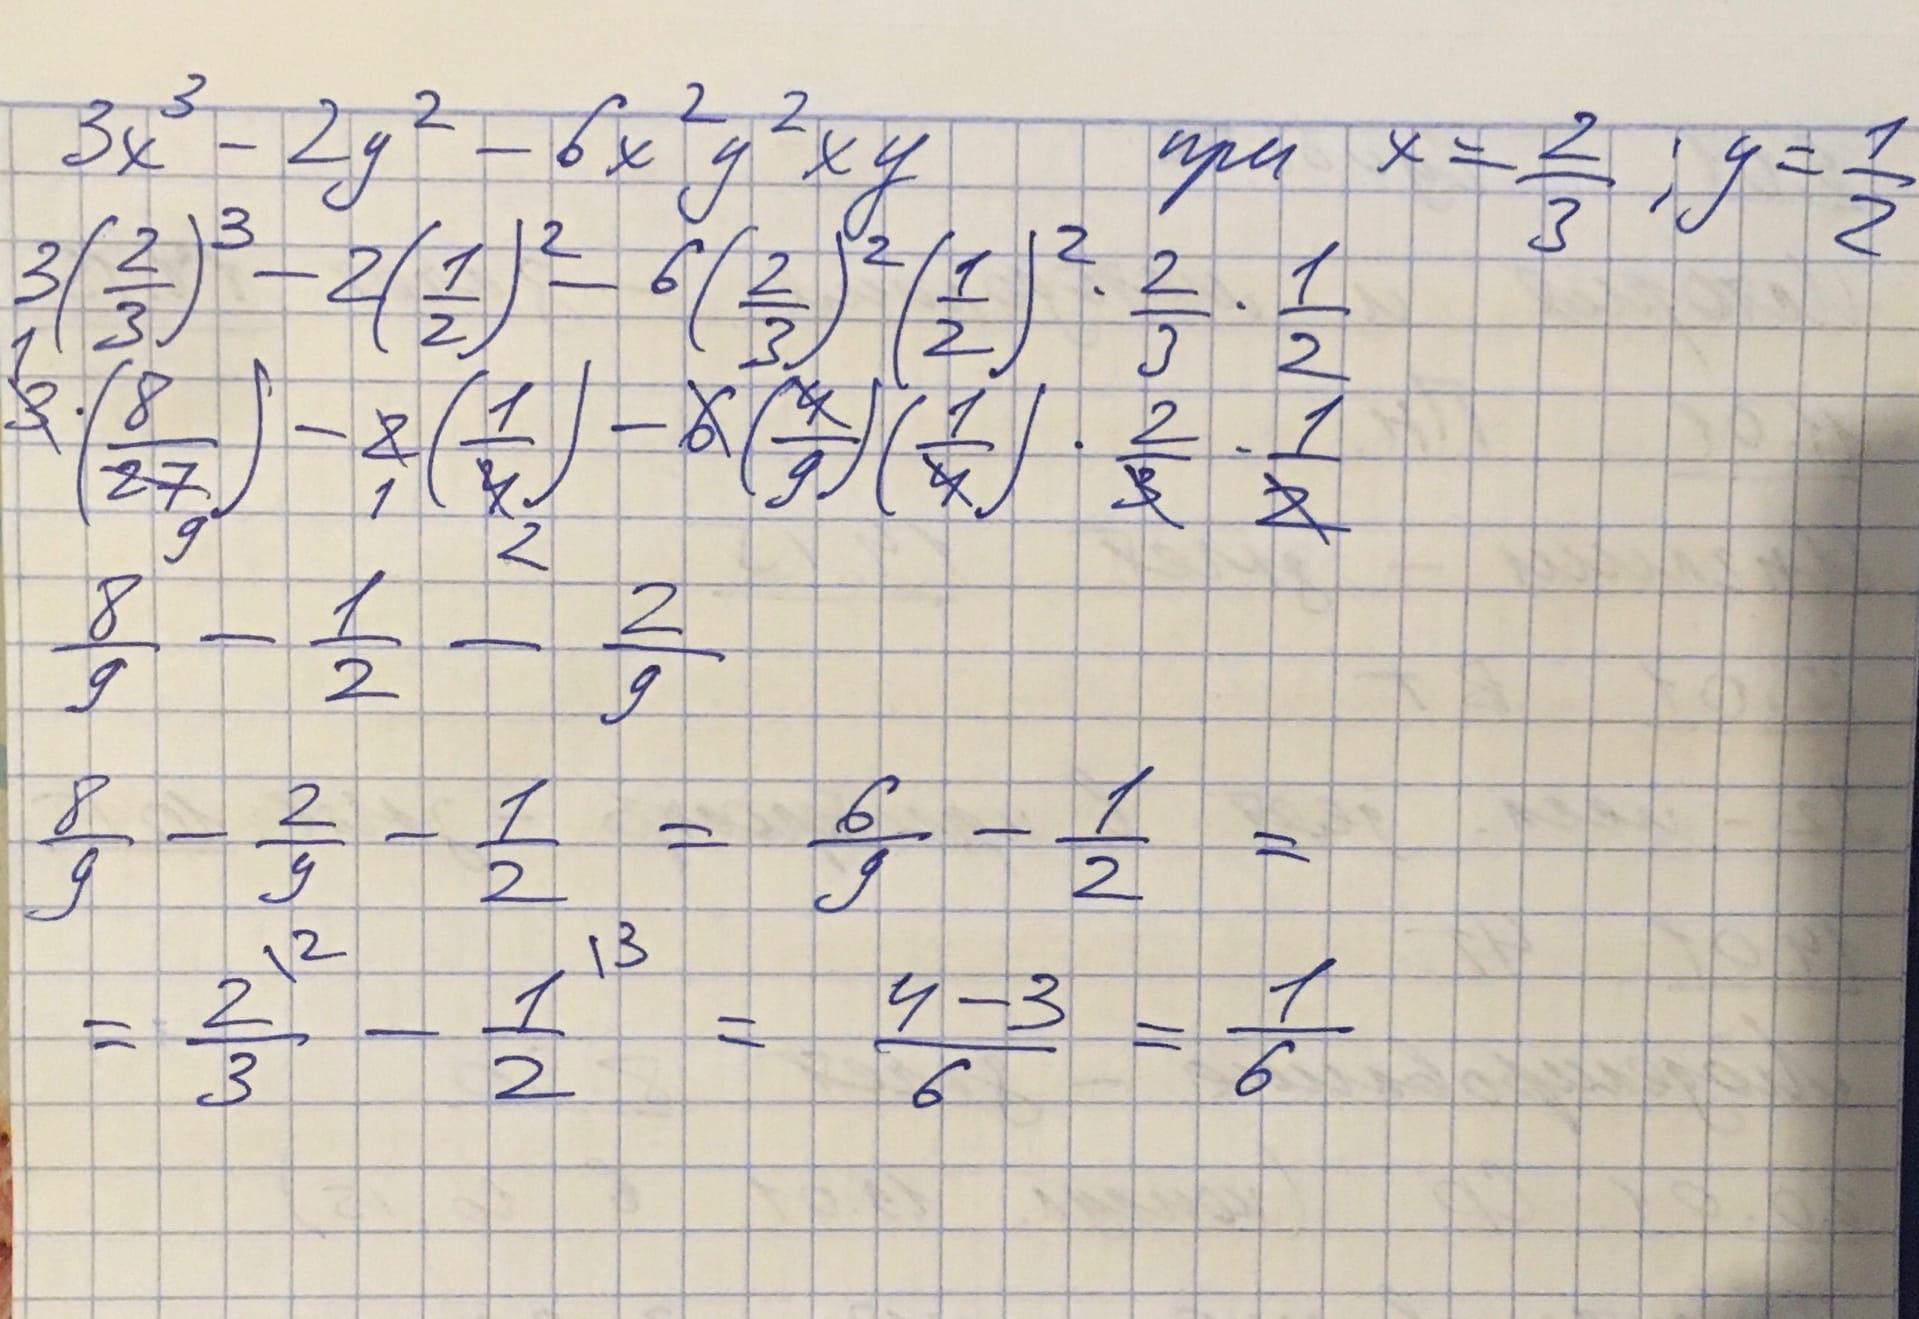 3x³ - 2y² - 6x²y²xy при x = 2/3 ; y = 1/2
3(2/3)³ - 2(1/2)² - 6(2/3)²(1/2)² · 2/3 · 1/2
1 3 · (8/27 9) - 2 1 (1/4 2) - 6(4/9)(1/4) · 2/3 · 1/2
8/9 - 1/2 - 2/9
8/9 - 2/9 - 1/2 = 6/9 - 1/2 =
= 2/3 \2 - 1/2 \3 = 4-3/6 = 1/6